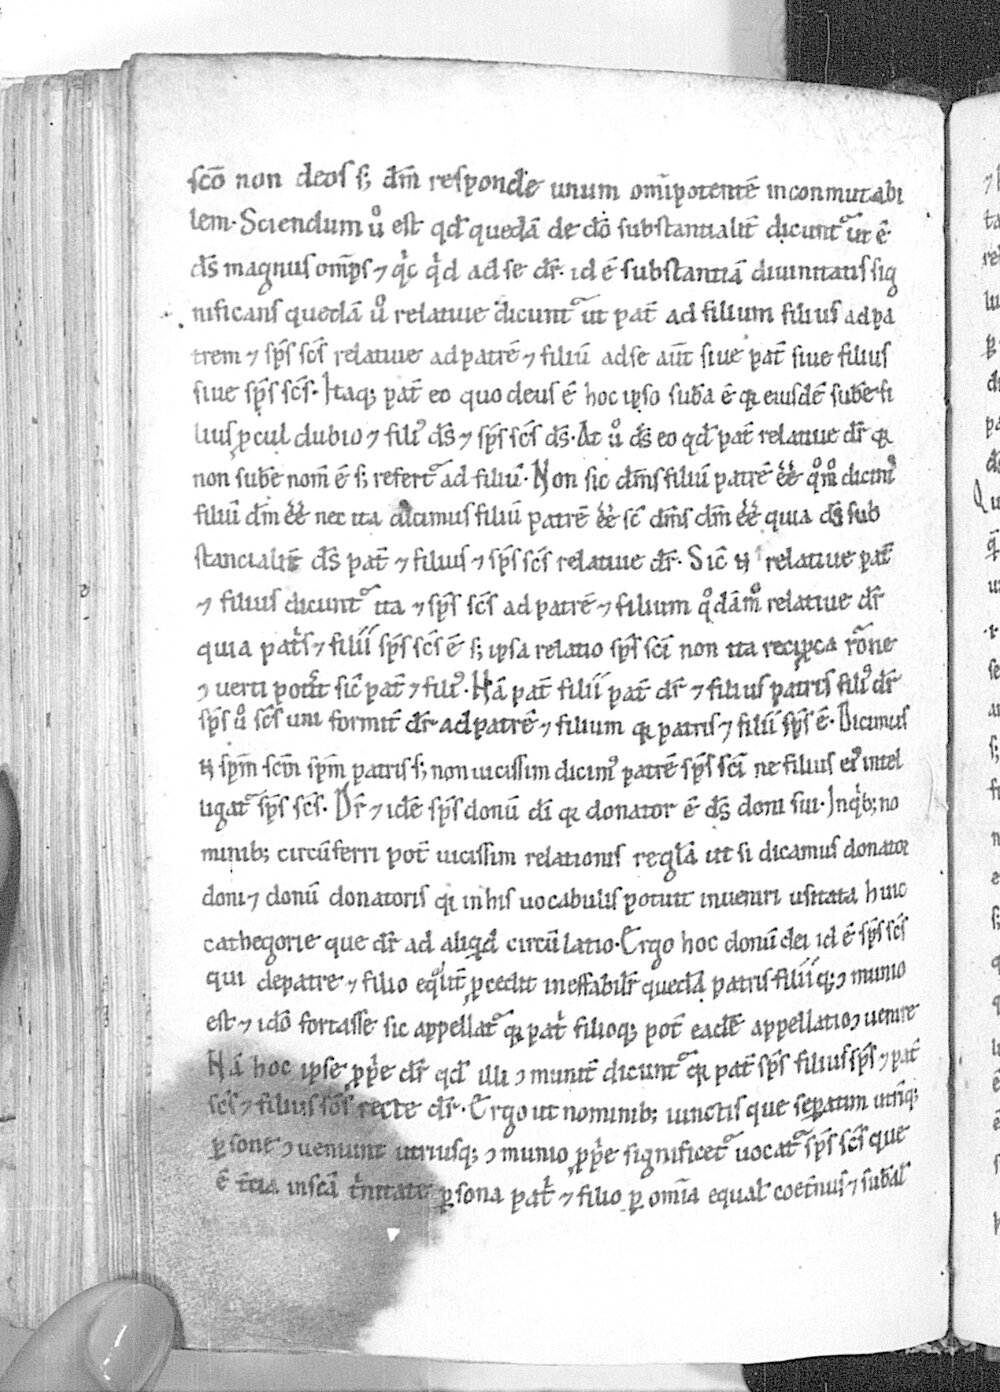 sc̄o non deos s; dm̄ responde unum om̄ipotentē inconmutabi
lem. Sciendum uͦ est qd̄ quedā de dō substantialit̄ dicunt᷑ ut ē
ds̄ magnus om̄ps ⁊ qͥcqͥd ad se dr̄. id ē substantiā diuinitatis sig
nificans quedā uͦ relatiue dicunt᷑ ut pat̄ ad filium filius ad pa
trem ⁊ sp̄s sc̄s relatiue ad patrē ⁊ filiū ad se aūt siue pat̄ siue filius
siue sp̄s sc̄s. Itaq; pat̄ eo quo deus ē hoc ipso sub̄a ē qꝛ eiusdē sub̄e fi
lius ꝓcul dubio ⁊ filiꝰ ds̄ ⁊ sp̄s sc̄s ds̄. At uͦ ds̄ eo qd̄ pat̄ relatiue dr̄ qꝛ
non sub̄e nom̄ ē s; refert᷑ ad filiū. Non sic dm̄s filiū patrē ee̅ qͦmͦ dicimꝰ
filiū dm̄ ee̅ nec ita dicimus filiū patrē ee̅ sc̄ dm̄s dm̄ ee̅ quia ds̄ sub
stancialit̄ ds̄ pat̄ ⁊ filius ⁊ sp̄s sc̄s relatiue dr̄. Sic̄ n̄ relatiue pat̄
⁊ filius dicunt᷑ ita ⁊ sp̄s sc̄s ad patrē ⁊ filium qͦdāmͦ relatiue dr̄
quia pat̄s ⁊ filii sp̄s sc̄s ē s; ipsa relatio sp̄s sc̄i non ita recipca rōne
ꝯuerti pot̄it sic̄ pat̄ ⁊ filiꝰ. Nā pat̄ filii pat̄ dr̄ ⁊ filius patris filiꝰ dr̄
sp̄s uͦ sc̄s uni formit̄ dr̄ ad patrē ⁊ filium qꝛ patris ⁊ filii sp̄s ē. Dicimus
n̄ sp̄m sc̄m sp̄m patris s; non uicissim dicimꝰ patrē sp̄s sc̄i ne filius eiꝰ intel
ligat᷑ sp̄s sc̄s. Dr̄ ⁊ idē sp̄s donū dī qꝛ donator ē ds̄ doni sui. In qͥb; no
minib; circūferri pot̄ uicissim relationis regla ut si dicamus donator
doni ⁊ donū donatoris qꝛ in his uocabulis potuit inueniri usitata huic
cathegorie que dr̄ ad aliqd̄ circūlatio. Ergo hoc donū dei id ē sp̄s sc̄s
qui de patre ⁊ filio eqͣlit̄ ꝓcedit ineffabilr̄ quedā patris filii q; ꝯmunio
est ⁊ idō fortasse sic appellat᷑ qꝛ pat̄ filioq; pot̄ eadē appellatio ꝯuenire
Nā hoc ipse ꝓpͥe dr̄ qd̄ illi ꝯmunit̄ dicunt᷑ qꝛ pat̄ sp̄s filius sp̄s ⁊ pat̄
sc̄s ⁊ filius sc̄s recte dr̄. Ergo ut nominib; iunctis que seꝑatim utriq;
ꝑsone ꝯueniunt utriusq; ꝯmunio ꝓpͥe significet᷑ uocat᷑ sp̄s sc̄s que
ē t̄cia in sc̄a tͥnitate ꝑsona pat̄ ⁊ filio ꝑ om̄ia equal̄ coet̄nus ⁊ sub̄al̄